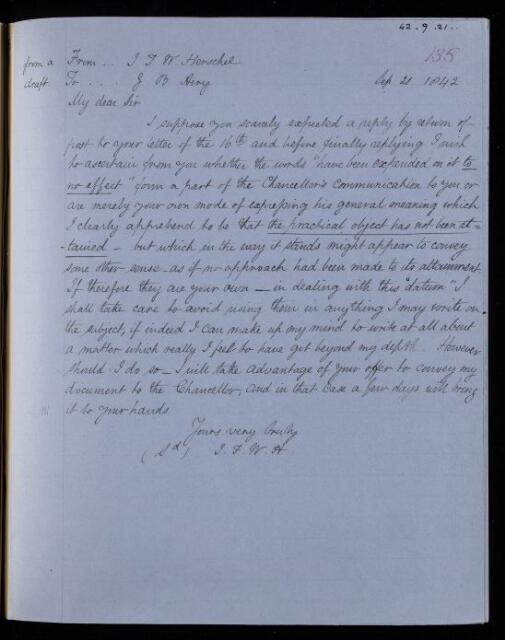 42.9.21..
135
from a
draft
From .. J F W Herschel
To .... G B Airy
Sep 21. 1842
My dear Sir
I suppose you scarcely expected a reply by return of
post to your letter of the 16th and before finally replying I wish
to ascertain from you whether the words "have been expended on it to
no effect" form a part of the Chancellor's communication to you or
are merely your own mode of expressing his general meaning which
I clearly apprehend to be that the practical object has not been at-
-tained - but which in the way it stands might appear to convey
some other sense - as if no approach had been made to its attainment
If therefore they are your own — in dealing with this "datum" I
shall take care to avoid using them in anything I may write on
the subject, if indeed I can make up my mind to write at all about
a matter which really I feel to have got beyond my depth. However
should I do so - I will take advantage of your offer to convey my
document to the Chancellor, and in that case a few days will bring
it to your hands
Yours very truly
(Sd) J. F. W. H.